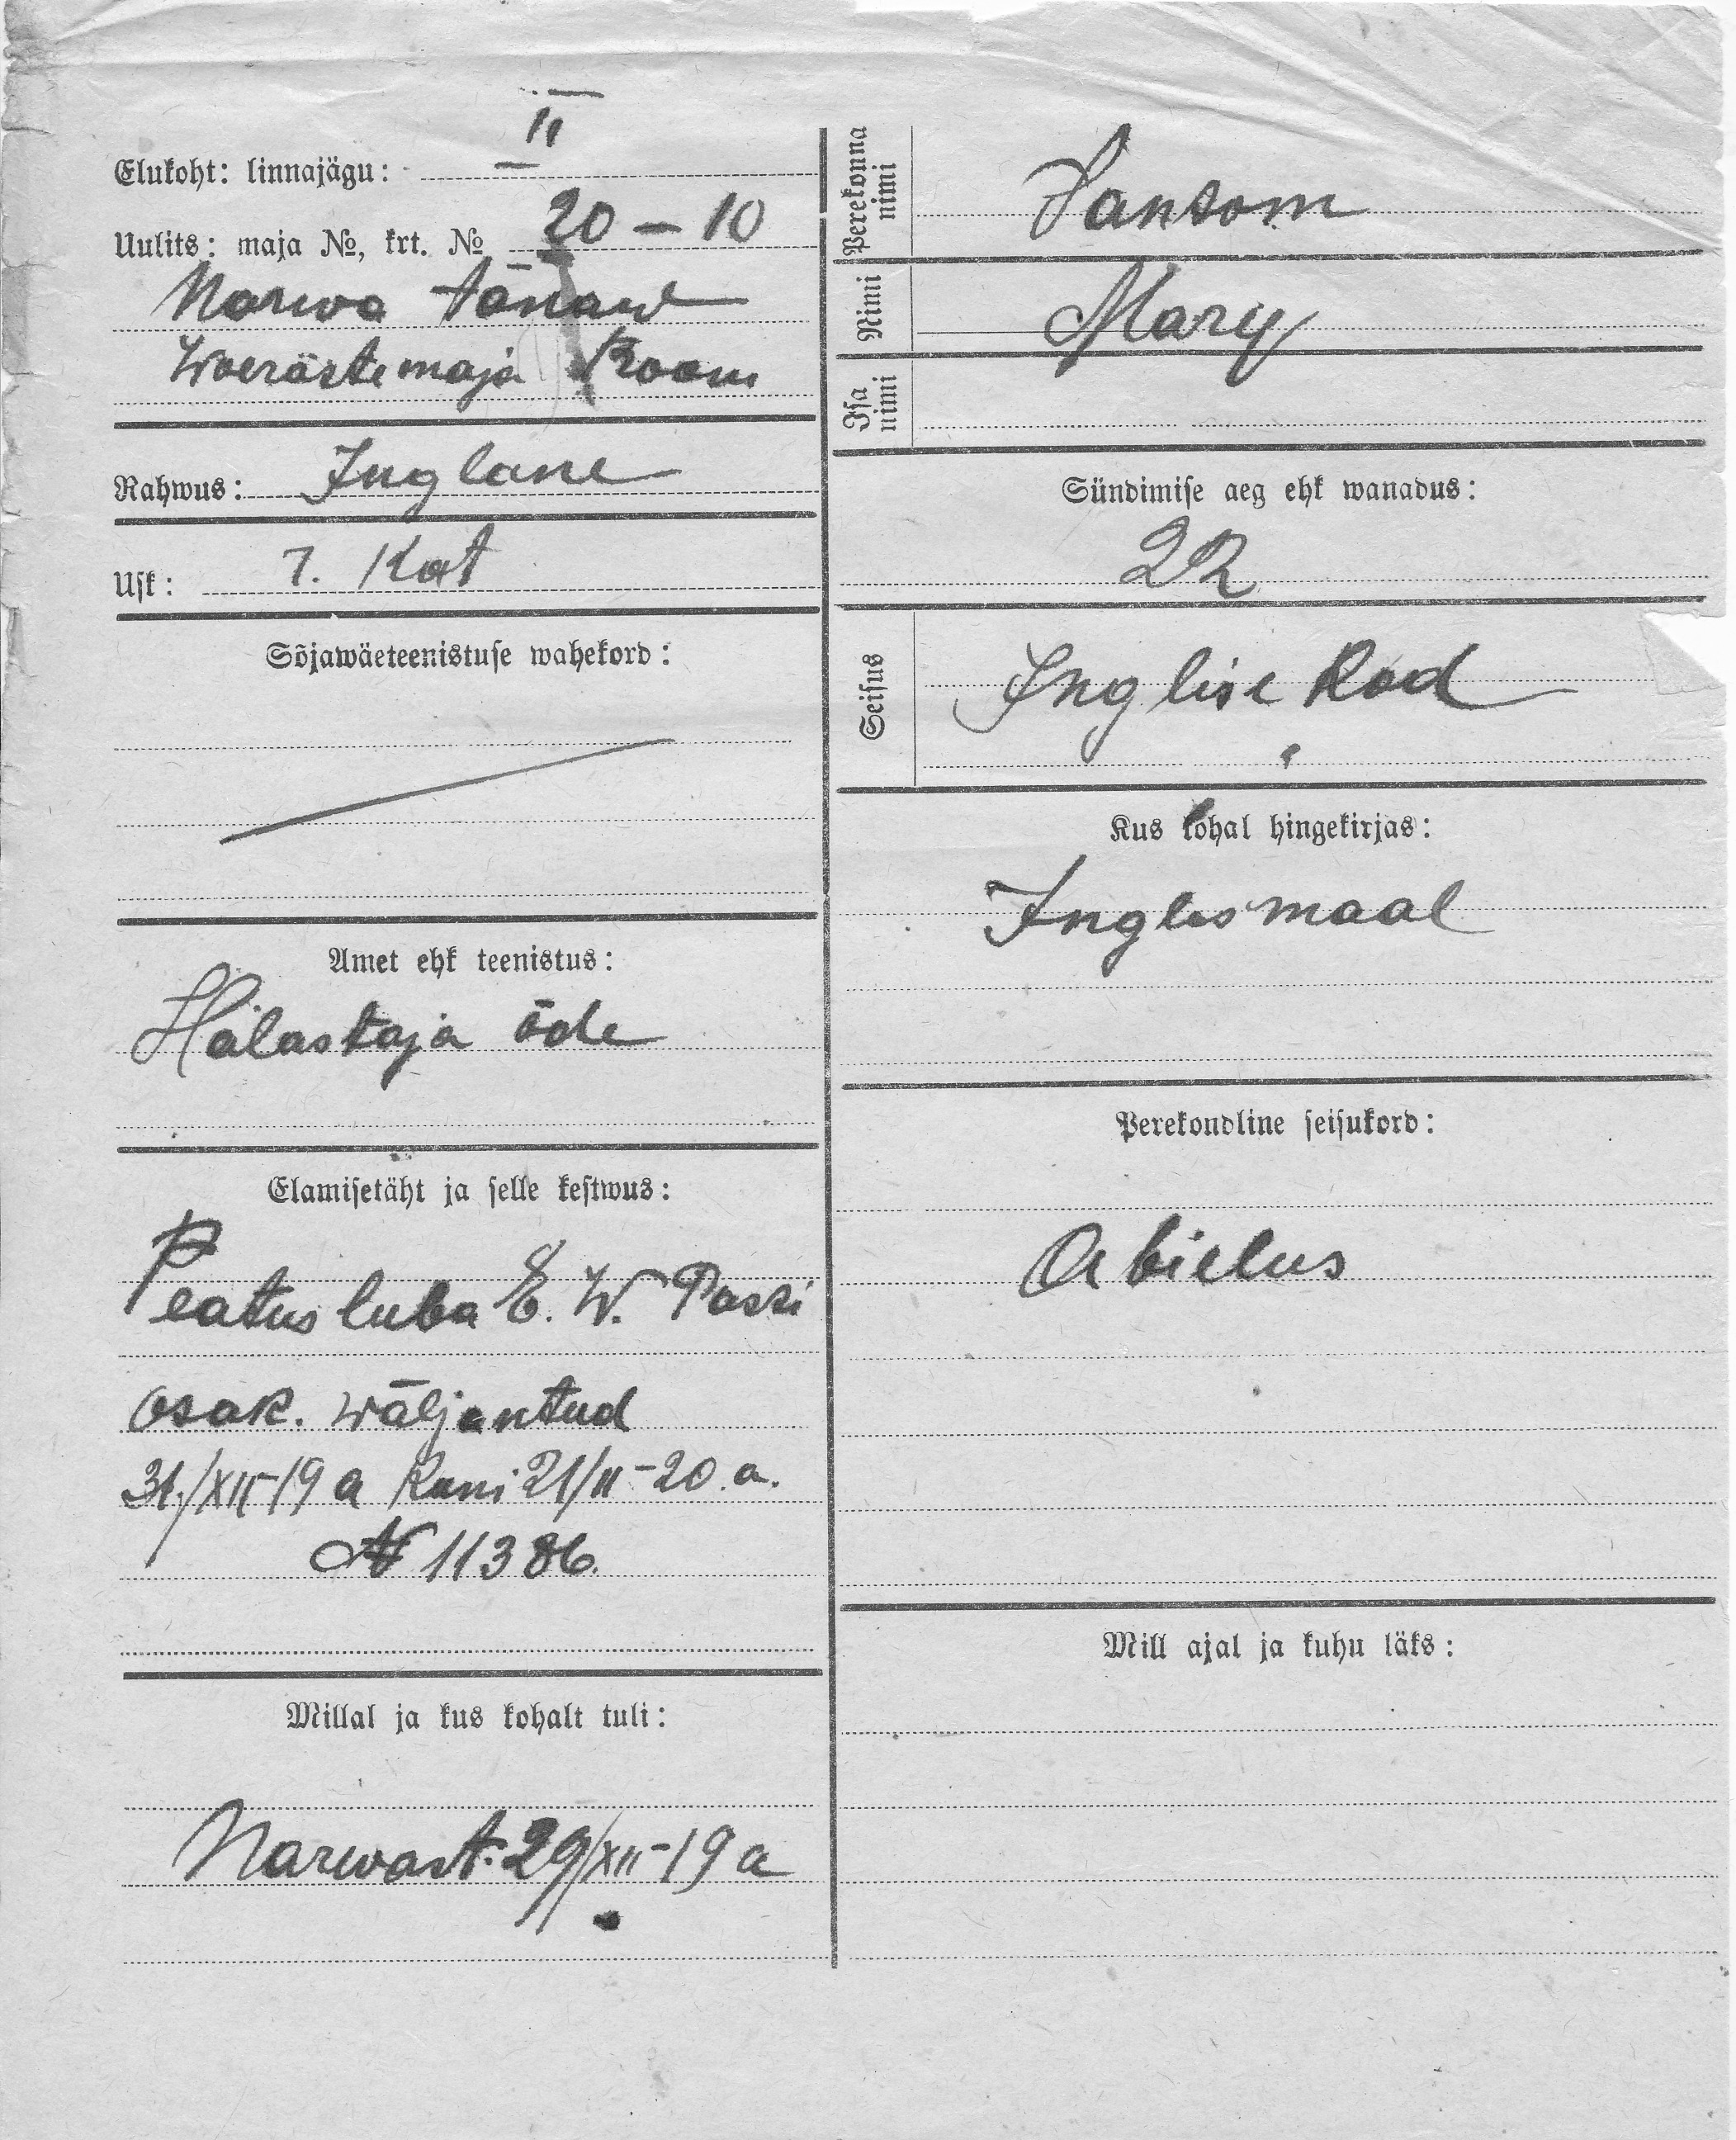 Elukoht: linnajägu: II
Uulits: maja №, krt. № 20 – 10
Narwa tänaw
Woeraste maja Kroom
Rahwus: Inglane
Usk: 7. Kat
Sõjawäeteenistuse wahekord:
Amet ehk teenistus:
Halastaja õde
Elamisetäht ja selle kestwus:
Peatus luba E. W. Passi
osak. wäljantud
31/XII-19 a Kuni 21/II-20.a.
№ 11386.
Millal ja kus kohalt tuli:
Narwast. 29/XII-19 a
Perekonna nimi
Sansom
Nimi
Mary
Isa nimi
Sündimise aeg ehk wanadus:
22
Seisus
Inglise Kod
Kus kohal hingekirjas:
Inglismaal
Perekondline seisukord:
Abielus
Mill ajal ja kuhu läks: